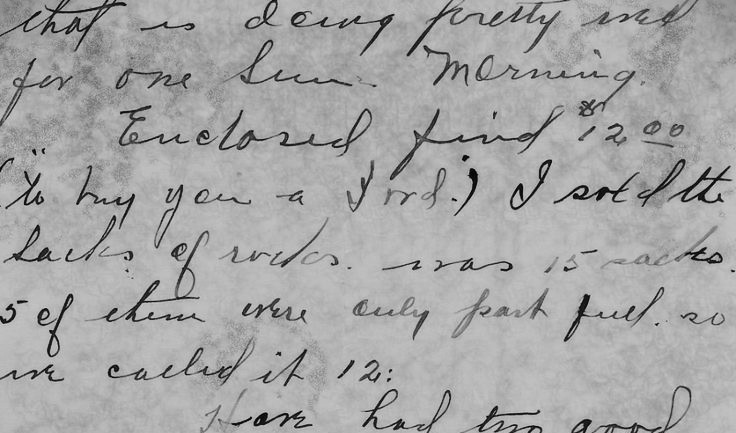 that is doing pretty well
for one Sun. Morning.
Enclosed find $12.00
(to buy you a Ford.) I sold the
sacks of rocks. was 15 sacks.
5 of them were only part full. so
we called it 12:
Have had two good